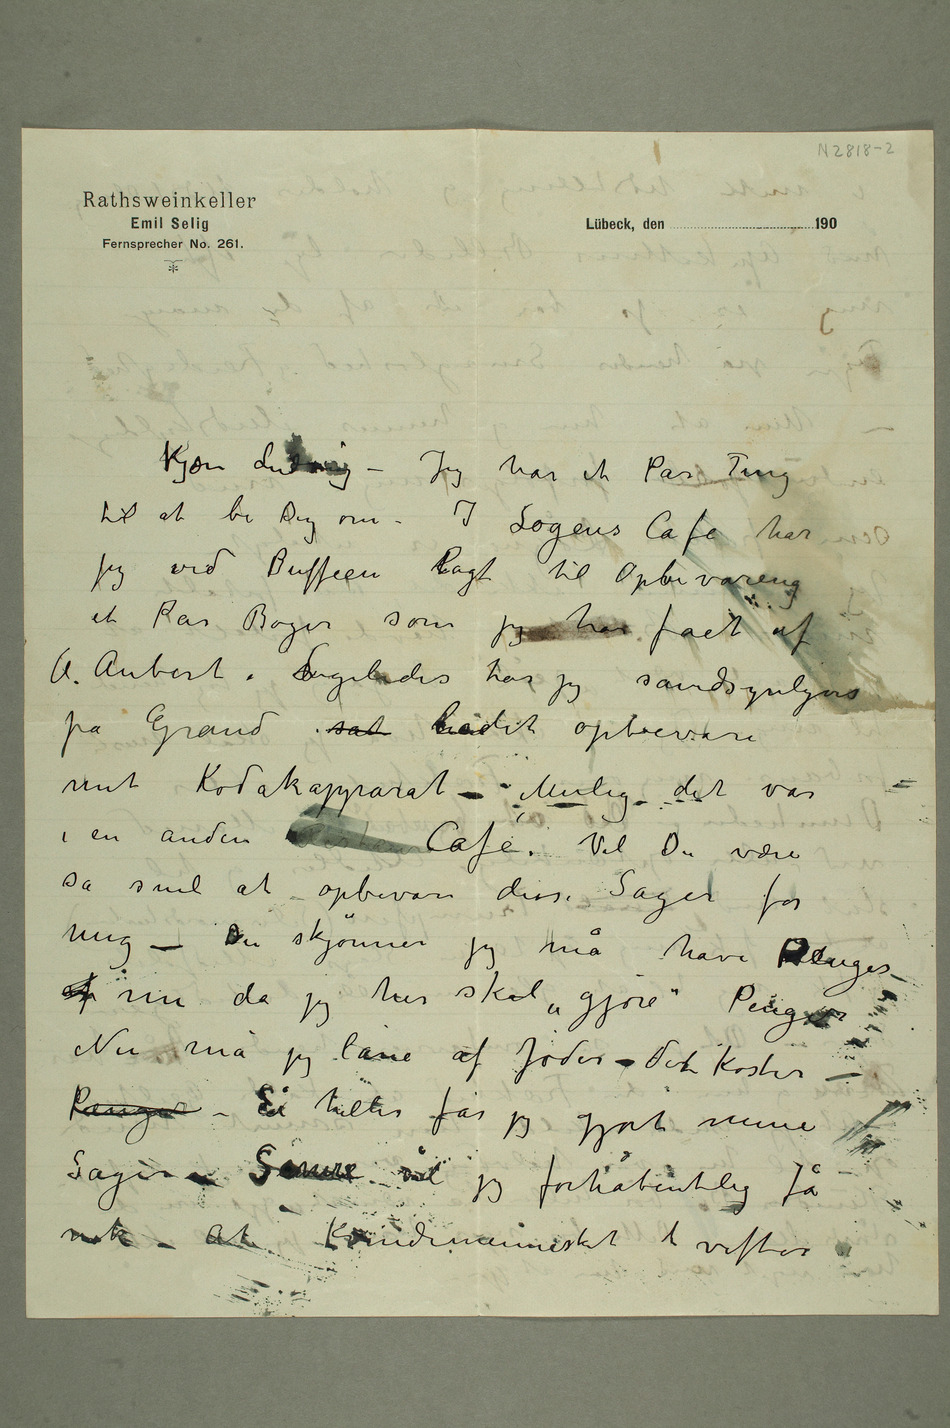 N 2818-2
Rathsweinkeller
Emil Selig
Fernsprecher No. 261.
Lübeck, den 190
Kjære Ludvig – Jeg har et Par Ting
til at be Dig om – I Logens Cafe har
jeg ved Buffeen lagt til Opbevaring
et Par Bøger som jeg har fået af
A. Aubert. Ligeledes har jeg sandsynligvis
på Grand sat ladet opbevare
mit Kodakapparat – Mulig det var
i en anden Café. Vil Du være
så snil at opbevare disse Sager for
mig – Du skjönner jeg må have Penger
af nu da jeg her skal „gjøre" Penger
Nu må jeg låne af Jøder – det koster –
Penger – Ei heller får jeg gjort mine
Sager – Senere vil jeg forhåbentlig få
nok – At Kvindemennisket t vifter